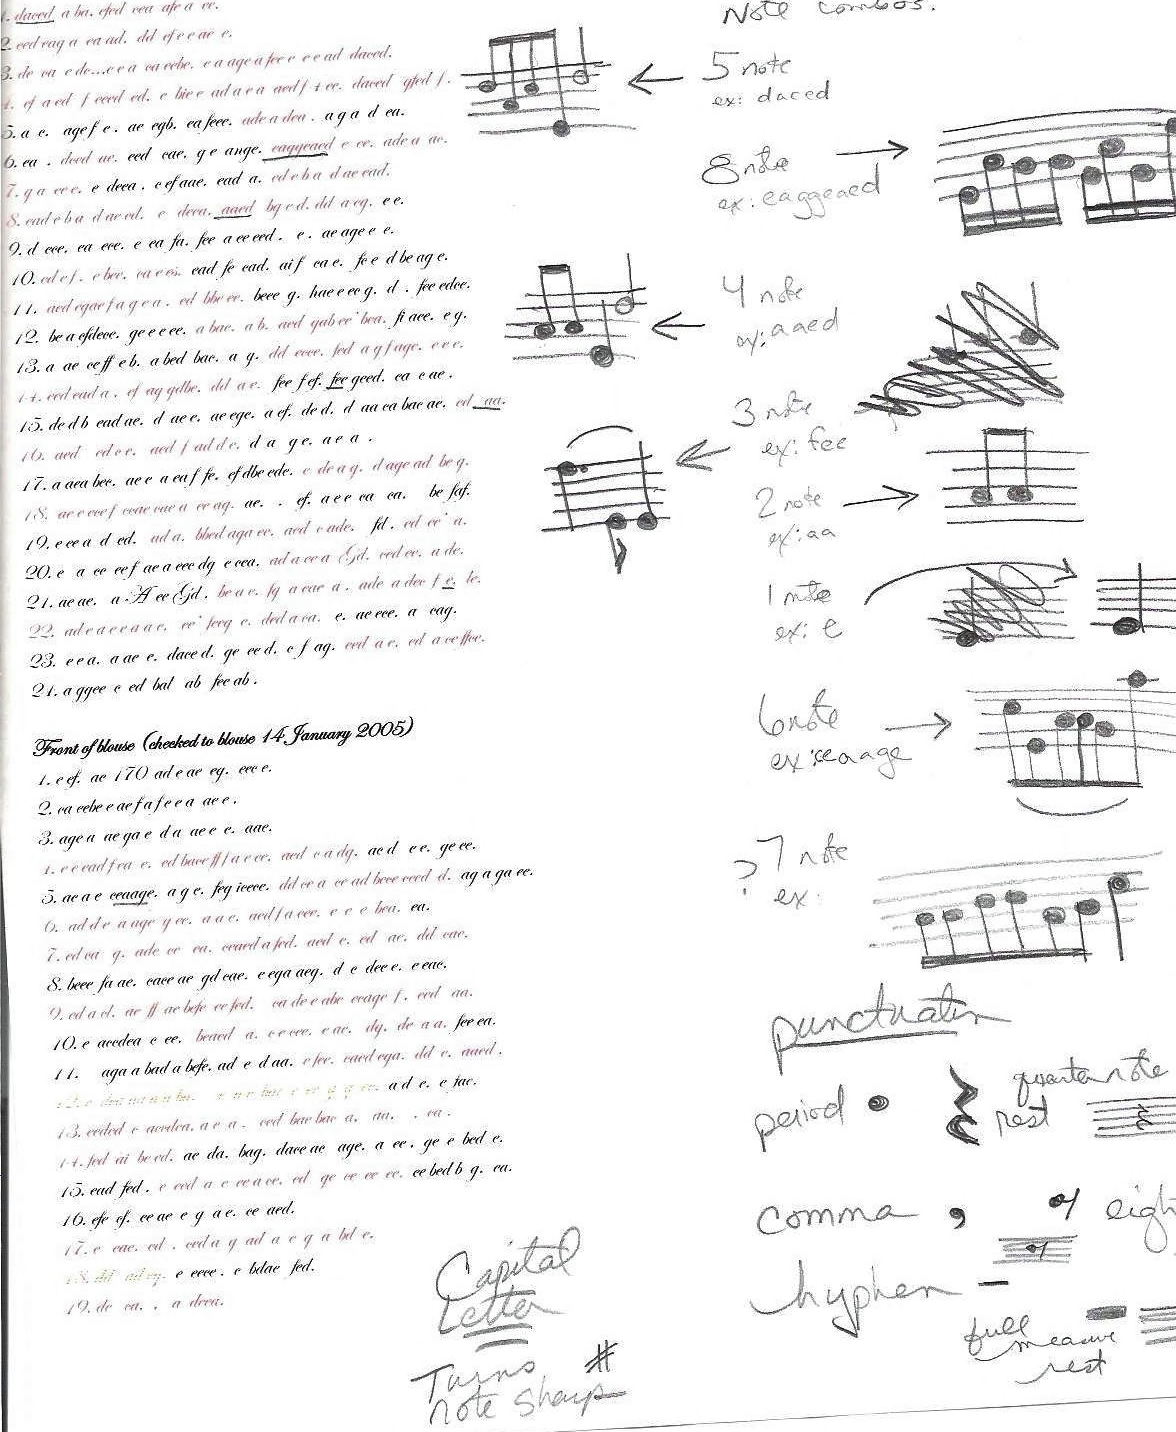 1. daced a ba. efed cea afe a ce.
2. eed eag a ea ad. dd ef e e ae e.
3. de ca e de...c e a ca eebe. e a age a fee e e e ad daced.
4. ef a ed f eeed ed. e bie e ad a e a aed f 4 ee. daced gfed f.
5. a e. age f e. ae egb. ea feee. ade a dea. a g a d ea.
6. ea. deed ae. eed cae. g e ange. eaggeaed e ee. ade a ae.
7. g a ee e. e deea. e efaae. ead a. ed e b a d ae ead.
8. ead e b a d ae ed. e deea. aaed bg e d. dd a eg. e e.
9. d eee. ea eee. e ea fa. fee a ee eed. e. ae age e e.
10. ed e f. e bee. ca e es. ead fe ead. aif ca e. fe e d be ag e.
11. aed egae f a g e a. ed bbe ee. beee g. hae e e e g. d. fee edee.
12. be a efdece. ge e e ee. a bae. a b. aed gab ee' bea. fi aee. e g.
13. a ae eeff e b. a bed bac. a g. dd eeee. fed a g f age. e e e.
14. eed ead a. ef ag gdbe. dd a e. fee f ef. fee geed. ea e ae.
15. de d b ead ae. d ae e. ae ege. a ef. de d. d aa ea bae ae. ed aa.
16. aed ed e e. aed f ad d e. d a g e. ae a.
17. a aea bec. ae e a ea f fe. ef dbe ede. e de a g. d age ad be g.
18. ae e eef eeae eae a ee ag. ae. . ef. a e e ea ea. be faf.
19. e ee a d ed. ad a. bbed aga ee. aed e ade. fd. ed ee' a.
20. e a ee eef ae a eee dg e eea. ad a ee a Gd. eed ee. a de.
21. ae ae. a-A ee Gd. be a e. fg a eae a. ade a dee f e. le.
22. ad e a e e a a e. ee' feeg e. ded a ea. e. ae eee. a eag.
23. e e a. a ae e. daee d. ge ee d. e f ag. eed a e. ed a ee ffee.
24. a ggee e ed bal ab fee ab.
Front of blouse (checked to blouse 14 January 2005)
1. e ef. ae 170 ad e ae eg. eee e.
2. ea eebe e ae f a f e e a ae e.
3. age a ae ga e d a ae e e. aae.
4. e e ead f ea e. ed baee ff f a e ee. aed e a dg. ae d e e. ge ee.
5. ae a e eeaage. a g e. feg ieeee. dd ee a ee ad beee eeed d. ag a ga ee.
6. ad d e a age g ee. a a e. aed f a eee. e e e bea. ea.
7. ed ea g. ade ee ea. eeaed a fed. aed e. ed ae. dd eae.
8. beee fa ae. eaee ae gd eae. e ega aeg. d e dee e. e eae.
9. ed a d. ae ff ae befe ee fed. ea de e abe eeage f. eed aa.
10. e aeedea e ee. beaed a. e e eee. e ae. dg. de a a. fee ea.
11. aga a bad a befe. ad e d aa. e fee. eaed ega. dd e. aaed.
a d e. e fae.
13. eeded e aeedea. a e a - eed bae bae a. aa. . ea.
14. fed ai be ed. ae da. bag. daee ae age. a ee. ge e bed e.
15. ead fed. e eed a e ee a ee. ed ge ee ee ee. ee bed b g. ea.
16. efe ef. ee ae e g a e. ee aed.
17. e eae. ed. eed a g ad a e g a bd e.
18. dd ad eg. e eeee. e bdae fed.
19. de ea. . a deea.
Capital
Letter
Turns #
note sharp
Note combos.
5 note
ex: daced
8 note
ex: eaggeaed
4 note
ex: aaed
3 note
ex: fee
2 note
ex: aa
1 note
ex: e
6 note
ex: eeaage
? 7 note
ex:
punctuation
period
quarter note
rest
comma , eigh
hyphen -
full
measure
rest